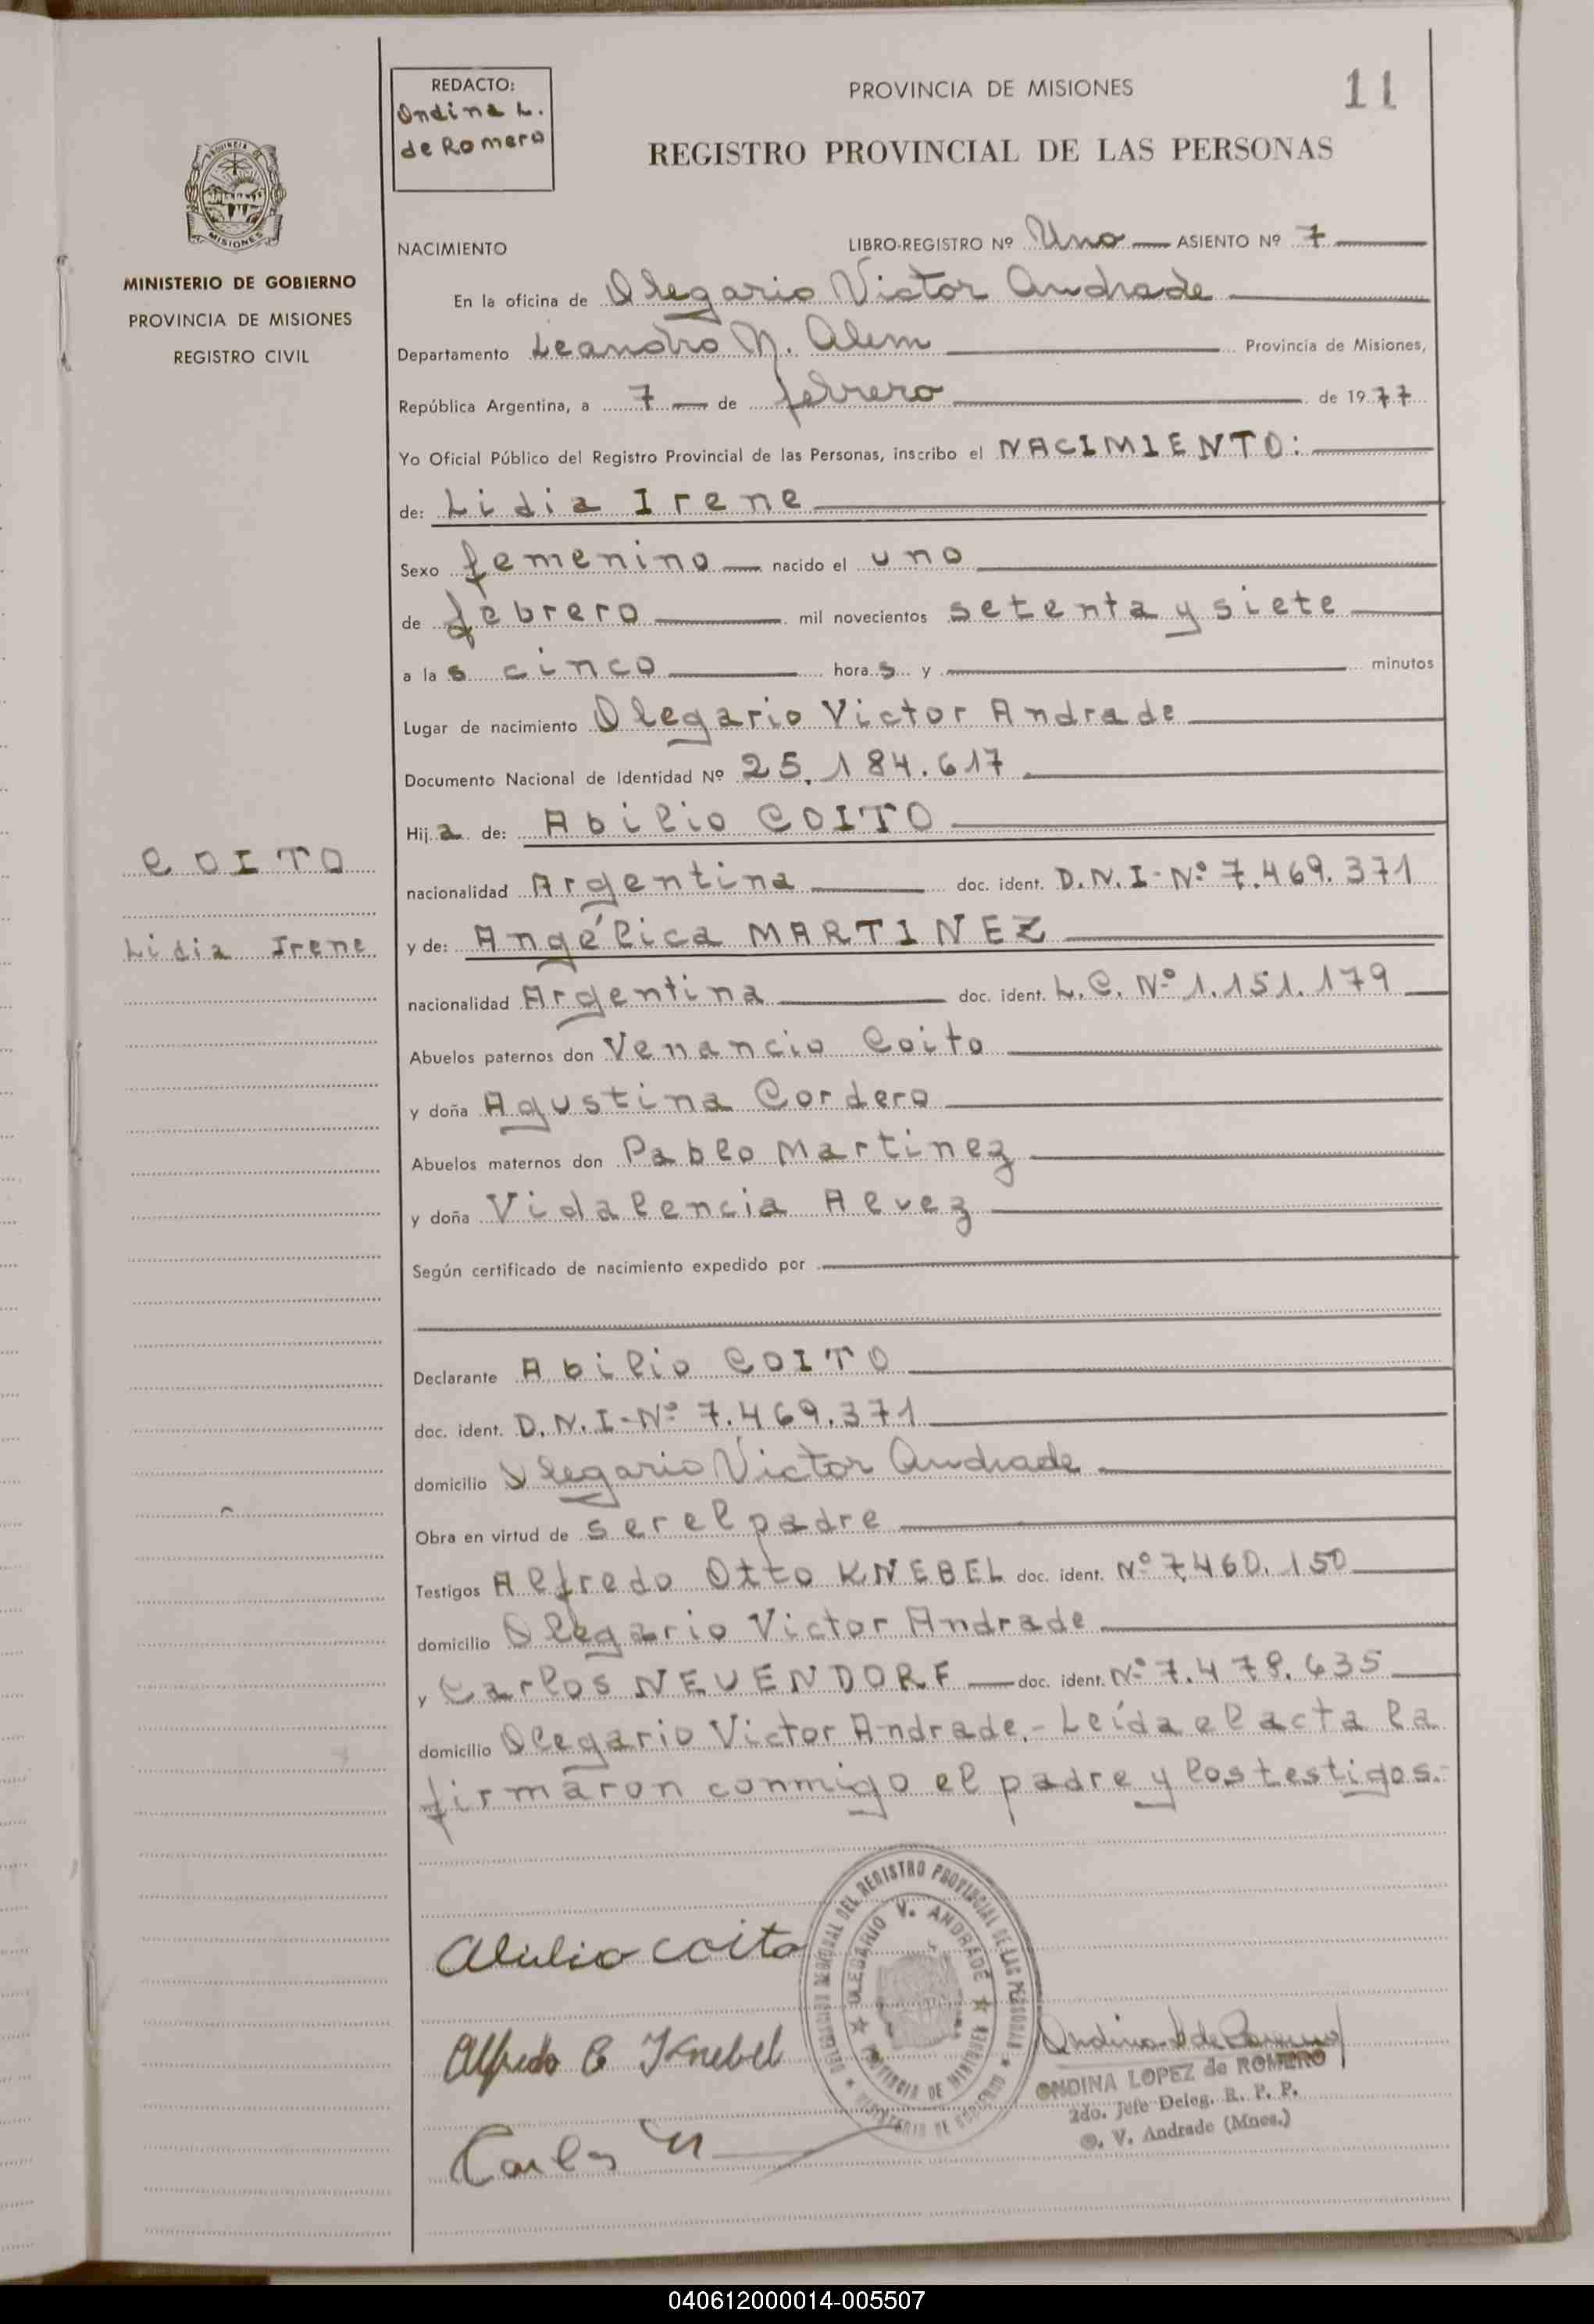 REDACTO:
Ondina L.
de Romero
PROVINCIA DE MISIONES
11
REGISTRO PROVINCIAL DE LAS PERSONAS
PROVINCIA DE
MISIONES
MINISTERIO DE GOBIERNO
PROVINCIA DE MISIONES
REGISTRO CIVIL
NACIMIENTO
LIBRO-REGISTRO Nº Uno ASIENTO Nº 7
En la oficina de Olegario Victor Andrade
Departamento Leandro N. Alem Provincia de Misiones,
República Argentina, a 7 de febrero de 1977
Yo Oficial Público del Registro Provincial de las Personas, inscribo el NACIMIENTO:
de: Lidia Irene
Sexo femenino nacido el uno
de febrero mil novecientos setenta y siete
a las cinco horas y minutos
Lugar de nacimiento Olegario Victor Andrade
Documento Nacional de Identidad Nº 25.184.617
Hija de: Abilio COITO
COITO
nacionalidad Argentina doc. ident. D.N.I-Nº 7.469.371
Lidia Irene
y de: Angélica MARTINEZ
nacionalidad Argentina doc. ident. L.C. Nº 1.151.179
Abuelos paternos don Venancio Coito
y doña Agustina Cordero
Abuelos maternos don Pablo Martinez
y doña Vidalencia Alvez
Según certificado de nacimiento expedido por
Declarante Abilio COITO
doc. ident. D.N.I-Nº 7.469.371
domicilio Olegario Victor Andrade
Obra en virtud de ser el padre
Testigos Alfredo Otto KNEBEL doc. ident. Nº 7.460.150
domicilio Olegario Victor Andrade
y Carlos NEUENDORF doc. ident. Nº 7.478.635
domicilio Olegario Victor Andrade.- Leída el acta la
firmaron conmigo el padre y los testigos.-
Abilio Coito
DELEGACION REGIONAL DEL REGISTRO PROVINCIAL DE LAS PERSONAS
MINISTERIO DE GOBIERNO
OLEGARIO V. ANDRADE
PROVINCIA DE MISIONES
Alfredo O Knebel
Ondina L de Romero
ONDINA LOPEZ de ROMERO
2do. Jefe Deleg. R. P. P.
O. V. Andrade (Mnes.)
Carlos N
040612000014-005507